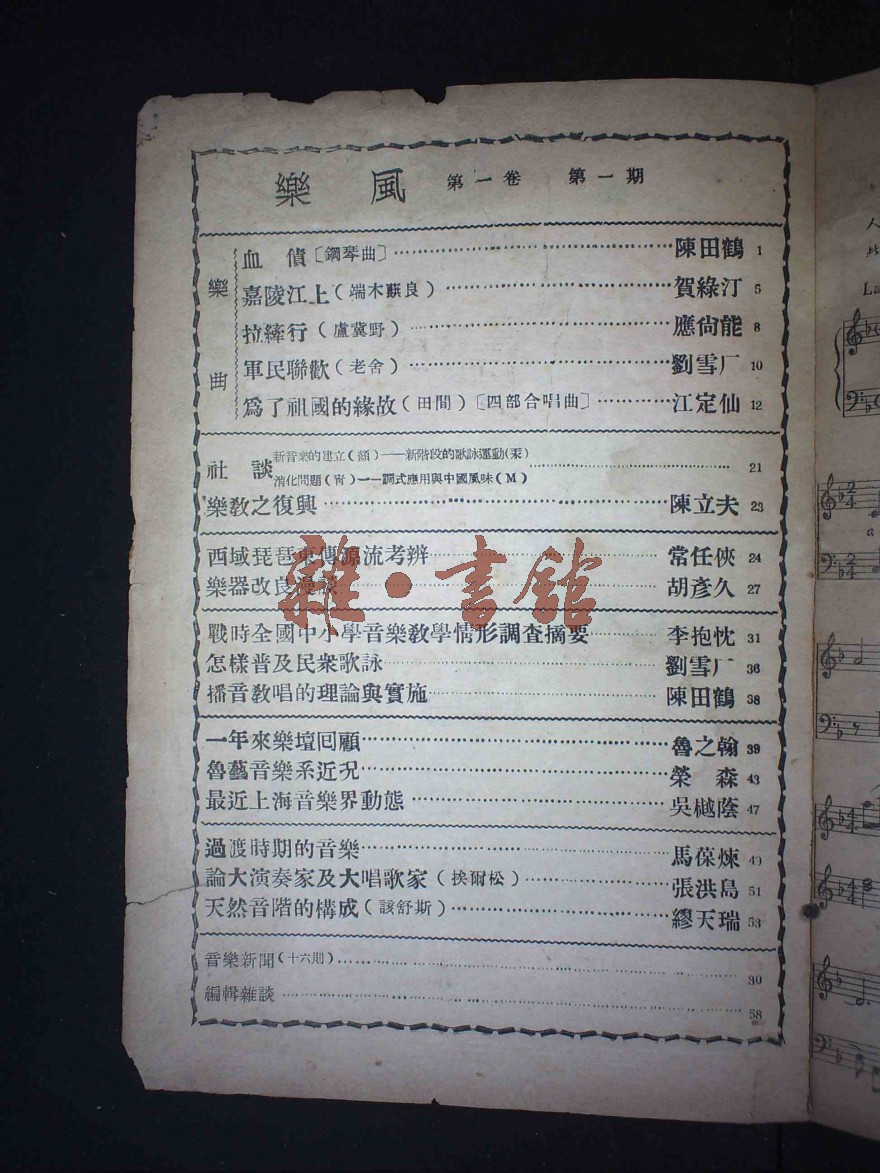 樂風 第一卷 第一期
樂曲
血債〔鋼琴曲〕 陳田鶴 1
嘉陵江上(端木蕻良) 賀綠汀 5
拉縴行(盧冀野) 應尙能 8
軍民聯歡(老舍) 劉雪厂 10
爲了祖國的緣故(田間)〔四部合唱曲〕 江定仙 12
社談
新音樂的建立(顏)——新階段的歌詠運動(棐)
消化問題(宵)——調式應用與中國風味(M) 21
樂敎之復興 陳立夫 23
西域琵琶東傳源流考辨 常任俠 24
樂器改良漫談 胡彥久 27
戰時全國中小學音樂敎學情形調查摘要 李抱忱 31
怎樣普及民衆歌詠 劉雪厂 36
播音敎唱的理論與實施 陳田鶴 38
一年來樂壇回顧 魯之翰 39
魯藝音樂系近況 榮森 43
最近上海音樂界動態 吳樾蔭 47
過渡時期的音樂 馬葆煉 49
論大演奏家及大唱歌家(挨爾松) 張洪島 51
天然音階的構成(該舒斯) 繆天瑞 53
音樂新聞(十六則) 30
編輯雜談 58
雜·書館
人
La
a